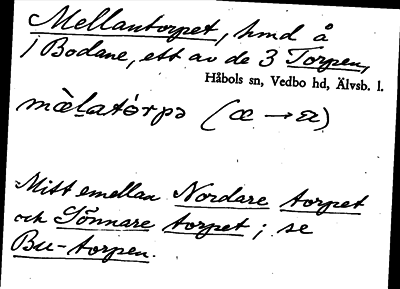 Mellantorpet, hmd å
1 Bodane, ett av de 3 Torpen,
Håbols sn, Vedbo hd, Älvsb. l.
mæ̀latǿrpə (æ → a)
Mitt emellan Nordare torpet
och Sönnare torpet; se
Bu-torpen.